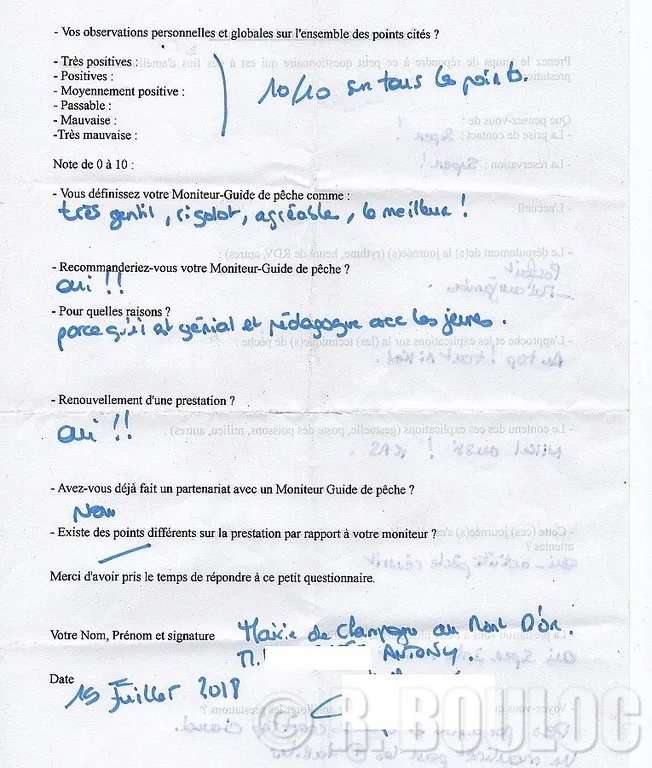 - Vos observations personnelles et globales sur l'ensemble des points cités ?
- Très positives :
- Positives :
- Moyennement positive :
- Passable :
- Mauvaise :
-Très mauvaise :
10/10 sur tous les points.
Note de 0 à 10 :
- Vous définissez votre Moniteur-Guide de pêche comme :
très gentil, rigolot, agréable, le meilleur !
- Recommanderiez-vous votre Moniteur-Guide de pêche ?
oui !!
- Pour quelles raisons ?
parce qu'il est génial et pédagogue avec les jeunes.
- Renouvellement d'une prestation ?
oui !!
- Avez-vous déjà fait un partenariat avec un Moniteur Guide de pêche ?
Non
- Existe des points différents sur la prestation par rapport à votre moniteur ?
Merci d'avoir pris le temps de répondre à ce petit questionnaire.
Votre Nom, Prénom et signature Mairie de Champagne au Mont D'or.
M. ANTONY.
Date
19 Juillet 2018
© R. BOULOC